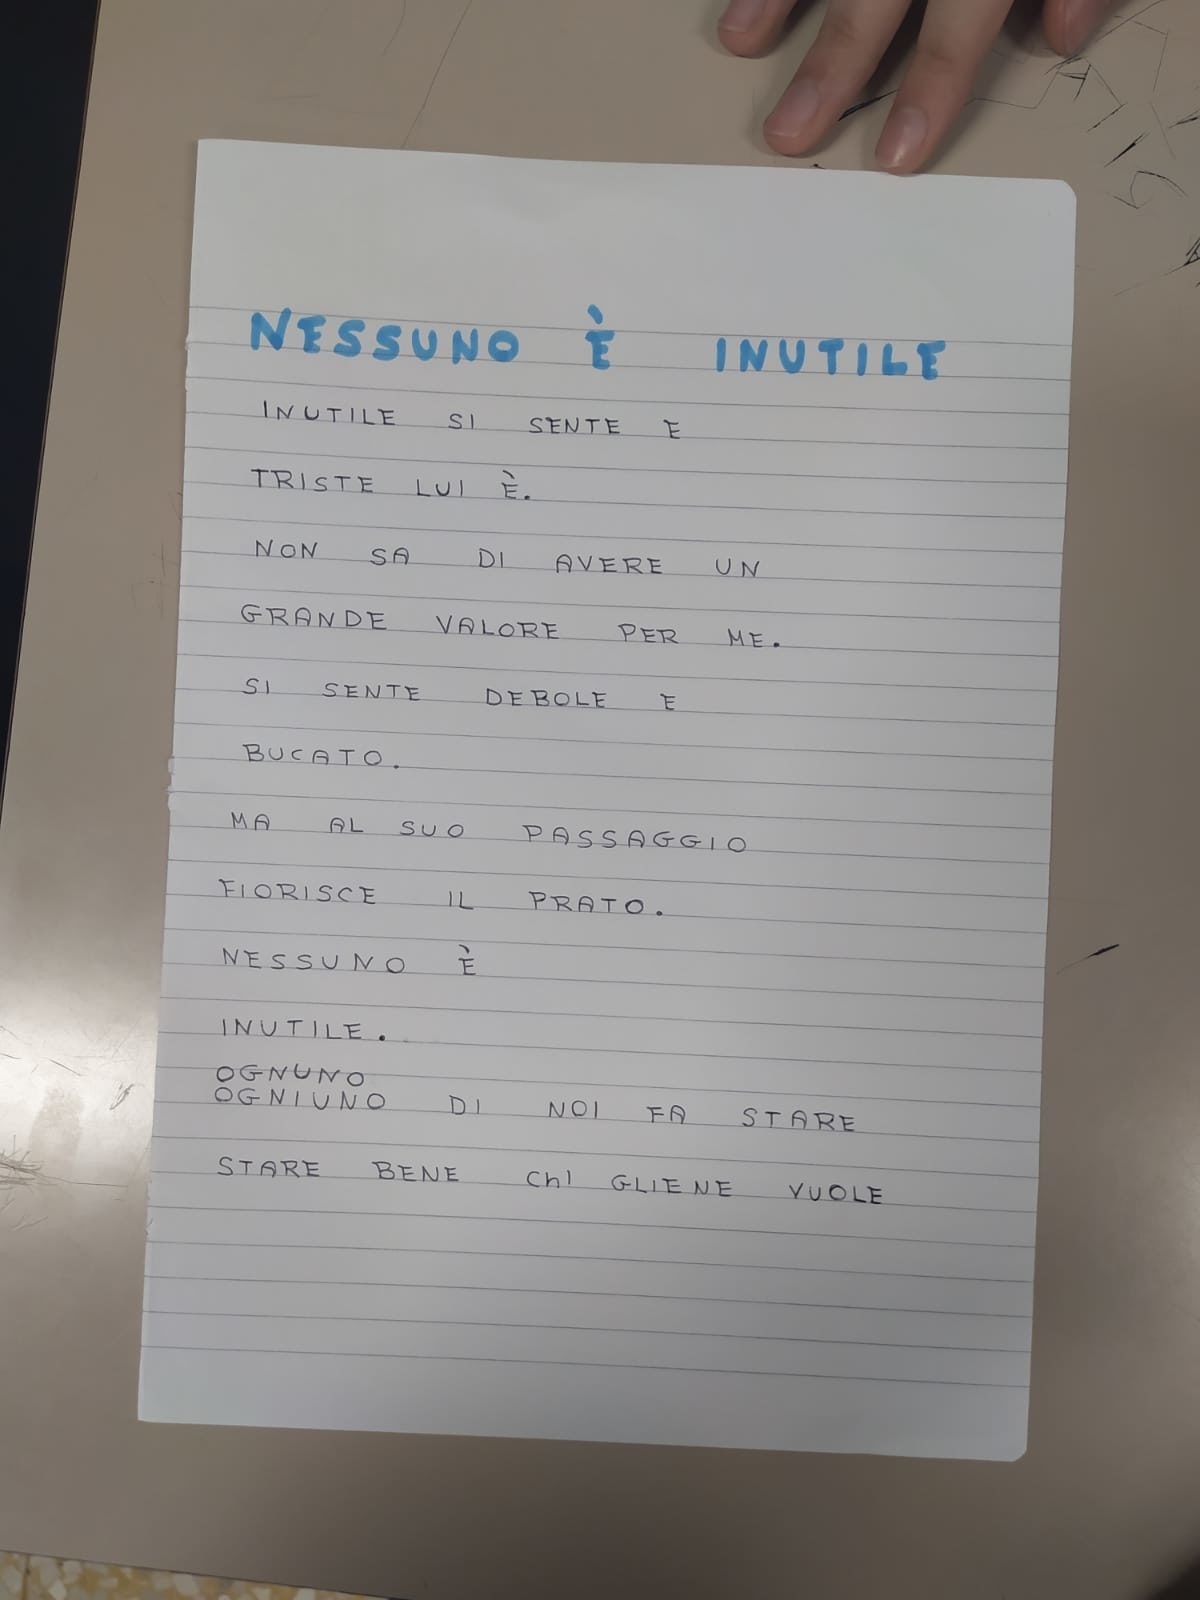 NESSUNO È INUTILE
INUTILE SI SENTE E
TRISTE LUI È.
NON SA DI AVERE UN
GRANDE VALORE PER ME.
SI SENTE DEBOLE E
BUCATO.
MA AL SUO PASSAGGIO
FIORISCE IL PRATO.
NESSUNO È
INUTILE.
OGNUNO
OGNIUNO DI NOI FA STARE
STARE BENE ChI GLIENE VUOLE